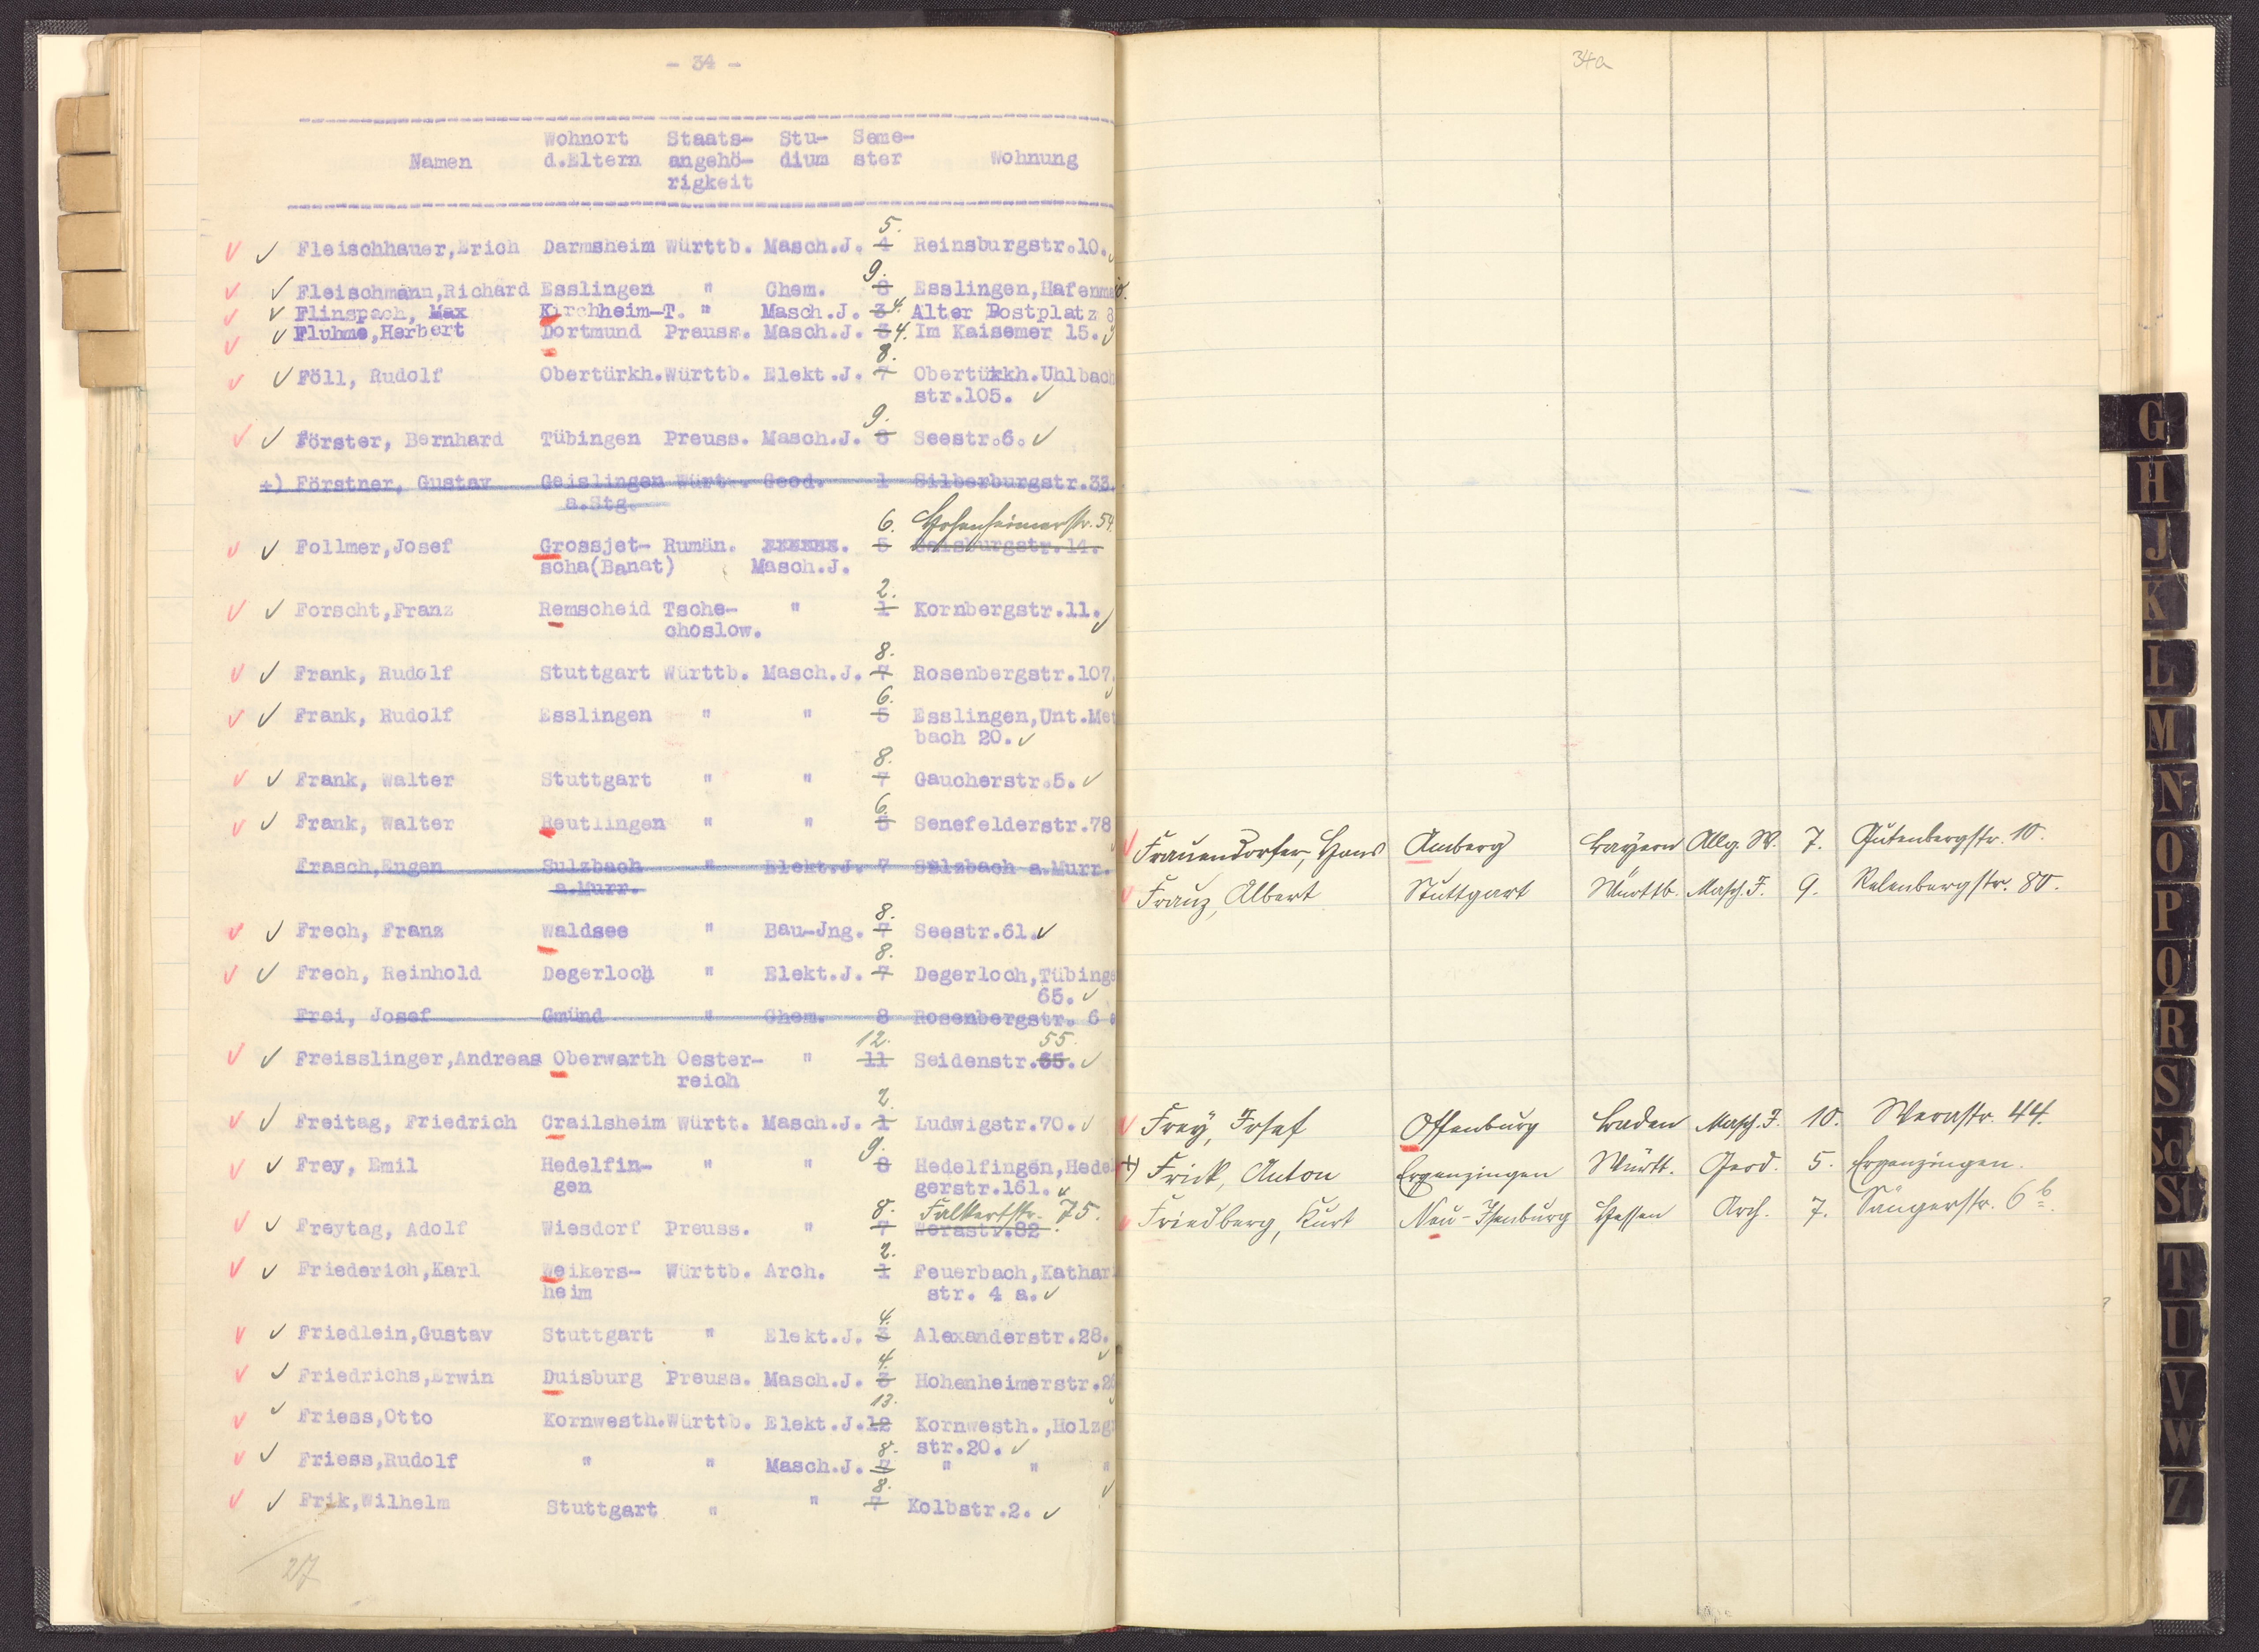 - 34 -
Namen Wohnort d.Eltern Staats-angehö-rigkeit Stu-dium Seme-ster Wohnung
5.
Fleischhauer,Erich Darmsheim Württb. Masch.J. 4 Reinsburgstr.10.
9.
Fleischmann,Richard Esslingen " Chem. 8 Esslingen,Hafenm
Flinspach, Max Kirchheim-T. " Masch.J. 3 4. Alter Postplatz 8
Fluhme,Herbert Dortmund Preuss. Masch.J. 3 4. Im Kaisemer 15.
8.
Föll, Rudolf Obertürkh.Württb. Elekt.J. 7 Obertürkh.Uhlbach
str.105.
9.
Förster, Bernhard Tübingen Preuss. Masch.J. 8 Seestr.6.
+) Förstner, Gustav Geislingen Württ. Geod. 1 Silberburgstr.33.
a.Stg.
6. Hohenheimerstr. 54.
Follmer,Josef Grossjet- Rumän. 5 Gaisburgstr.14.
scha(Banat) Masch.J.
2.
Forscht,Franz Remscheid Tsche- " 1 Kornbergstr.11.
choslow.
8.
Frank, Rudolf Stuttgart Württb. Masch.J. 7 Rosenbergstr.107.
6.
Frank, Rudolf Esslingen " " 5 Esslingen,Unt.Met
bach 20.
8.
Frank, Walter Stuttgart " " 7 Gaucherstr.5.
6.
Frank, Walter Reutlingen " " 5 Senefelderstr.78
Frasch,Eugen Sulzbach " Elekt.J. 7 Sulzbach a.Murr.
a.Murr.
8.
Frech, Franz Waldsee " Bau-Jng. 7 Seestr.61.
8.
Frech, Reinhold Degerloch " Elekt.J. 7 Degerloch,Tübinge
65.
Frei, Josef Gmünd " Chem. 8 Rosenbergstr. 6
12. 55.
Freisslinger,Andreas Oberwarth Oester- " 11 Seidenstr.65.
reich
2.
Freitag, Friedrich Crailsheim Württ. Masch.J. 1 Ludwigstr.70.
9.
Frey, Emil Hedelfin- " " 8 Hedelfingen,Hede
gen gerstr.161.
8. Falkertstr. 75.
Freytag, Adolf Wiesdorf Preuss. " 7 Werastr.82
2.
Friederich,Karl Weikers- Württb. Arch. 1 Feuerbach,Kathar
heim str. 4 a.
4.
Friedlein,Gustav Stuttgart " Elekt.J. 3 Alexanderstr.28.
4.
Friedrichs,Erwin Duisburg Preuss. Masch.J. 3 Hohenheimerstr.
13.
Friess,Otto Kornwesth.Württb. Elekt.J.12 Kornwesth.,Holzg
str.20.
8.
Friess,Rudolf " " Masch.J. 7 " " "
8.
Frik,Wilhelm Stuttgart " " 7 Kolbstr.2.
27
34a
Frauendorfer, Hans Amberg Bayern Allg. W. 7. Gutenbergstr. 10.
Franz, Albert Stuttgart Württb. Masch.J. 9. Relenbergstr. 80.
Frey, Josef Offenburg Baden Masch.J. 10. Werastr. 44.
+) Frick, Anton Ergenzingen Württ. Geod. 5. Ergenzingen.
Friedberg, Kurt Neu-Isenburg Hessen Arch. 7. Sängerstr. 6 b.
G
H
J
K
L
M
N
O
P
Q
R
S
Sch
St
T
U
V
W
Z